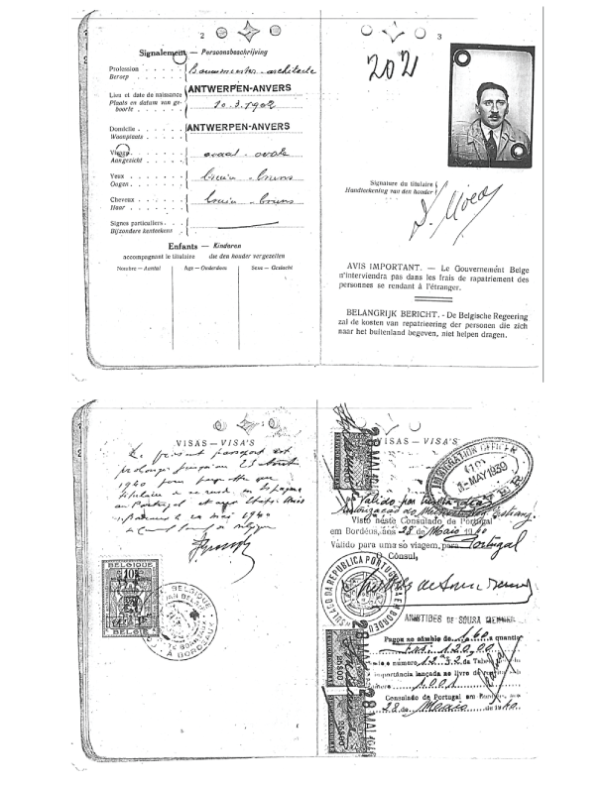 2
Signalement — Persoonsbeschrijving
Profession
Beroep
Bouwmeester - architecte
Lieu et date de naissance
Plaats en datum van ge-
boorte
ANTWERPEN-ANVERS
10.3.1902
Domicile
Woonplaats
ANTWERPEN-ANVERS
Visage
Aangezicht
ovaal - ovale
Yeux
Oogen
bruin - bruns
Cheveux
Haar
bruin - bruns
Signes particuliers
Bijzondere kenteekens
Enfants — Kinderen
accompagnant le titulaire die den houder vergezellen
Nombre — Aantal Age — Ouderdom Sexe — Geslacht
3
202
Signature du titulaire
Handteekening van den houder
AVIS IMPORTANT. — Le Gouvernement Belge
n'interviendra pas dans les frais de rapatriement des
personnes se rendant à l'étranger.
BELANGRIJK BERICHT. - De Belgische Regeering
zal de kosten van repatrieering der personen die zich
naar het buitenland begeven, niet helpen dragen.
VISAS — VISA'S
Le présent passeport est
prolongé jusqu'au 23 Août
1940 pour permettre au
titulaire de se rendre en Espagne
au Portugal et aux Etats Unis
Bordeaux le 22 mai 1940
BELGIQUE
10
BELGIE
BELGIQUE
A BORDEAUX
VISAS — VISA'S
28 MAI
IMMIGRATION OFFICER
MAY 1939
Valido por
Visto neste Consulado de Portugal
em Bordéus, aos 28 de Maio 1940
Válido para uma só viagem, para Portugal
O Cônsul,
CONSULADO DA REPUBLICA PORTUGUESA EM BORDEUS
ARISTIDES DE SOUSA MENDES
Pagou ao câmbio de
120,00
o número
da Tabela
importância lançada no livro de receita sob
número 1001
Consulado de Portugal em Bordéus, aos
28 de Maio de 1940
28 MAI